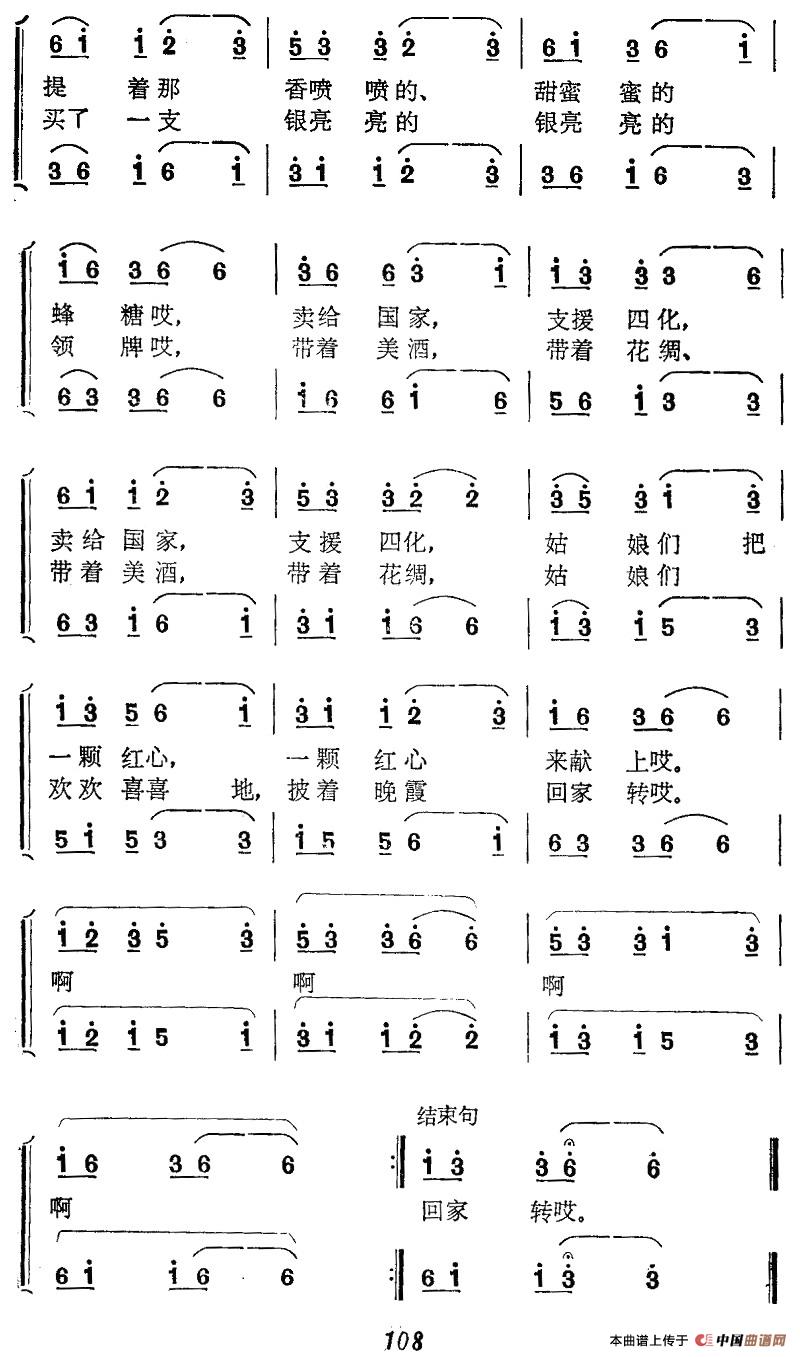 6 1 1 2 3 | 5 3 3 2 3 | 6 1 3 6 1 |
提 着那 香喷 喷的、 甜蜜 蜜的
买了 一支 银亮 亮的 银亮 亮的
3 6 1 6 1 | 3 1 1 2 3 | 3 6 1 6 3 |
1 6 3 6 6 | 3 6 6 3 1 | 1 3 3 3 6 |
蜂 糖哎, 卖给 国家, 支援 四化,
领 牌哎, 带着 美酒, 带着 花绸、
6 3 3 6 6 | 1 6 6 1 6 | 5 6 1 3 3 |
6 1 1 2 3 | 5 3 3 2 2 | 3 5 3 1 3 |
卖给 国家, 支援 四化, 姑 娘们 把
带着 美酒, 带着 花绸, 姑 娘们
6 3 1 6 1 | 3 1 1 6 6 | 1 3 1 5 3 |
1 3 5 6 1 | 3 1 1 2 3 | 1 6 3 6 6 |
一颗 红心, 一颗 红心 来献 上哎。
欢欢 喜喜 地, 披着 晚霞 回家 转哎。
5 1 5 3 3 | 1 5 5 6 1 | 6 3 3 6 6 |
1 2 3 5 3 | 5 3 3 6 6 | 5 3 3 1 3 |
啊 啊 啊
1 2 1 5 1 | 3 1 1 2 2 | 1 3 1 5 3 |
结束句
1 6 3 6 6 :‖ 1 3 3 6 6 ‖
啊 回家 转哎。
6 1 1 6 6 :‖ 6 1 1 3 3 ‖
108
本曲谱上传于 中国曲谱网